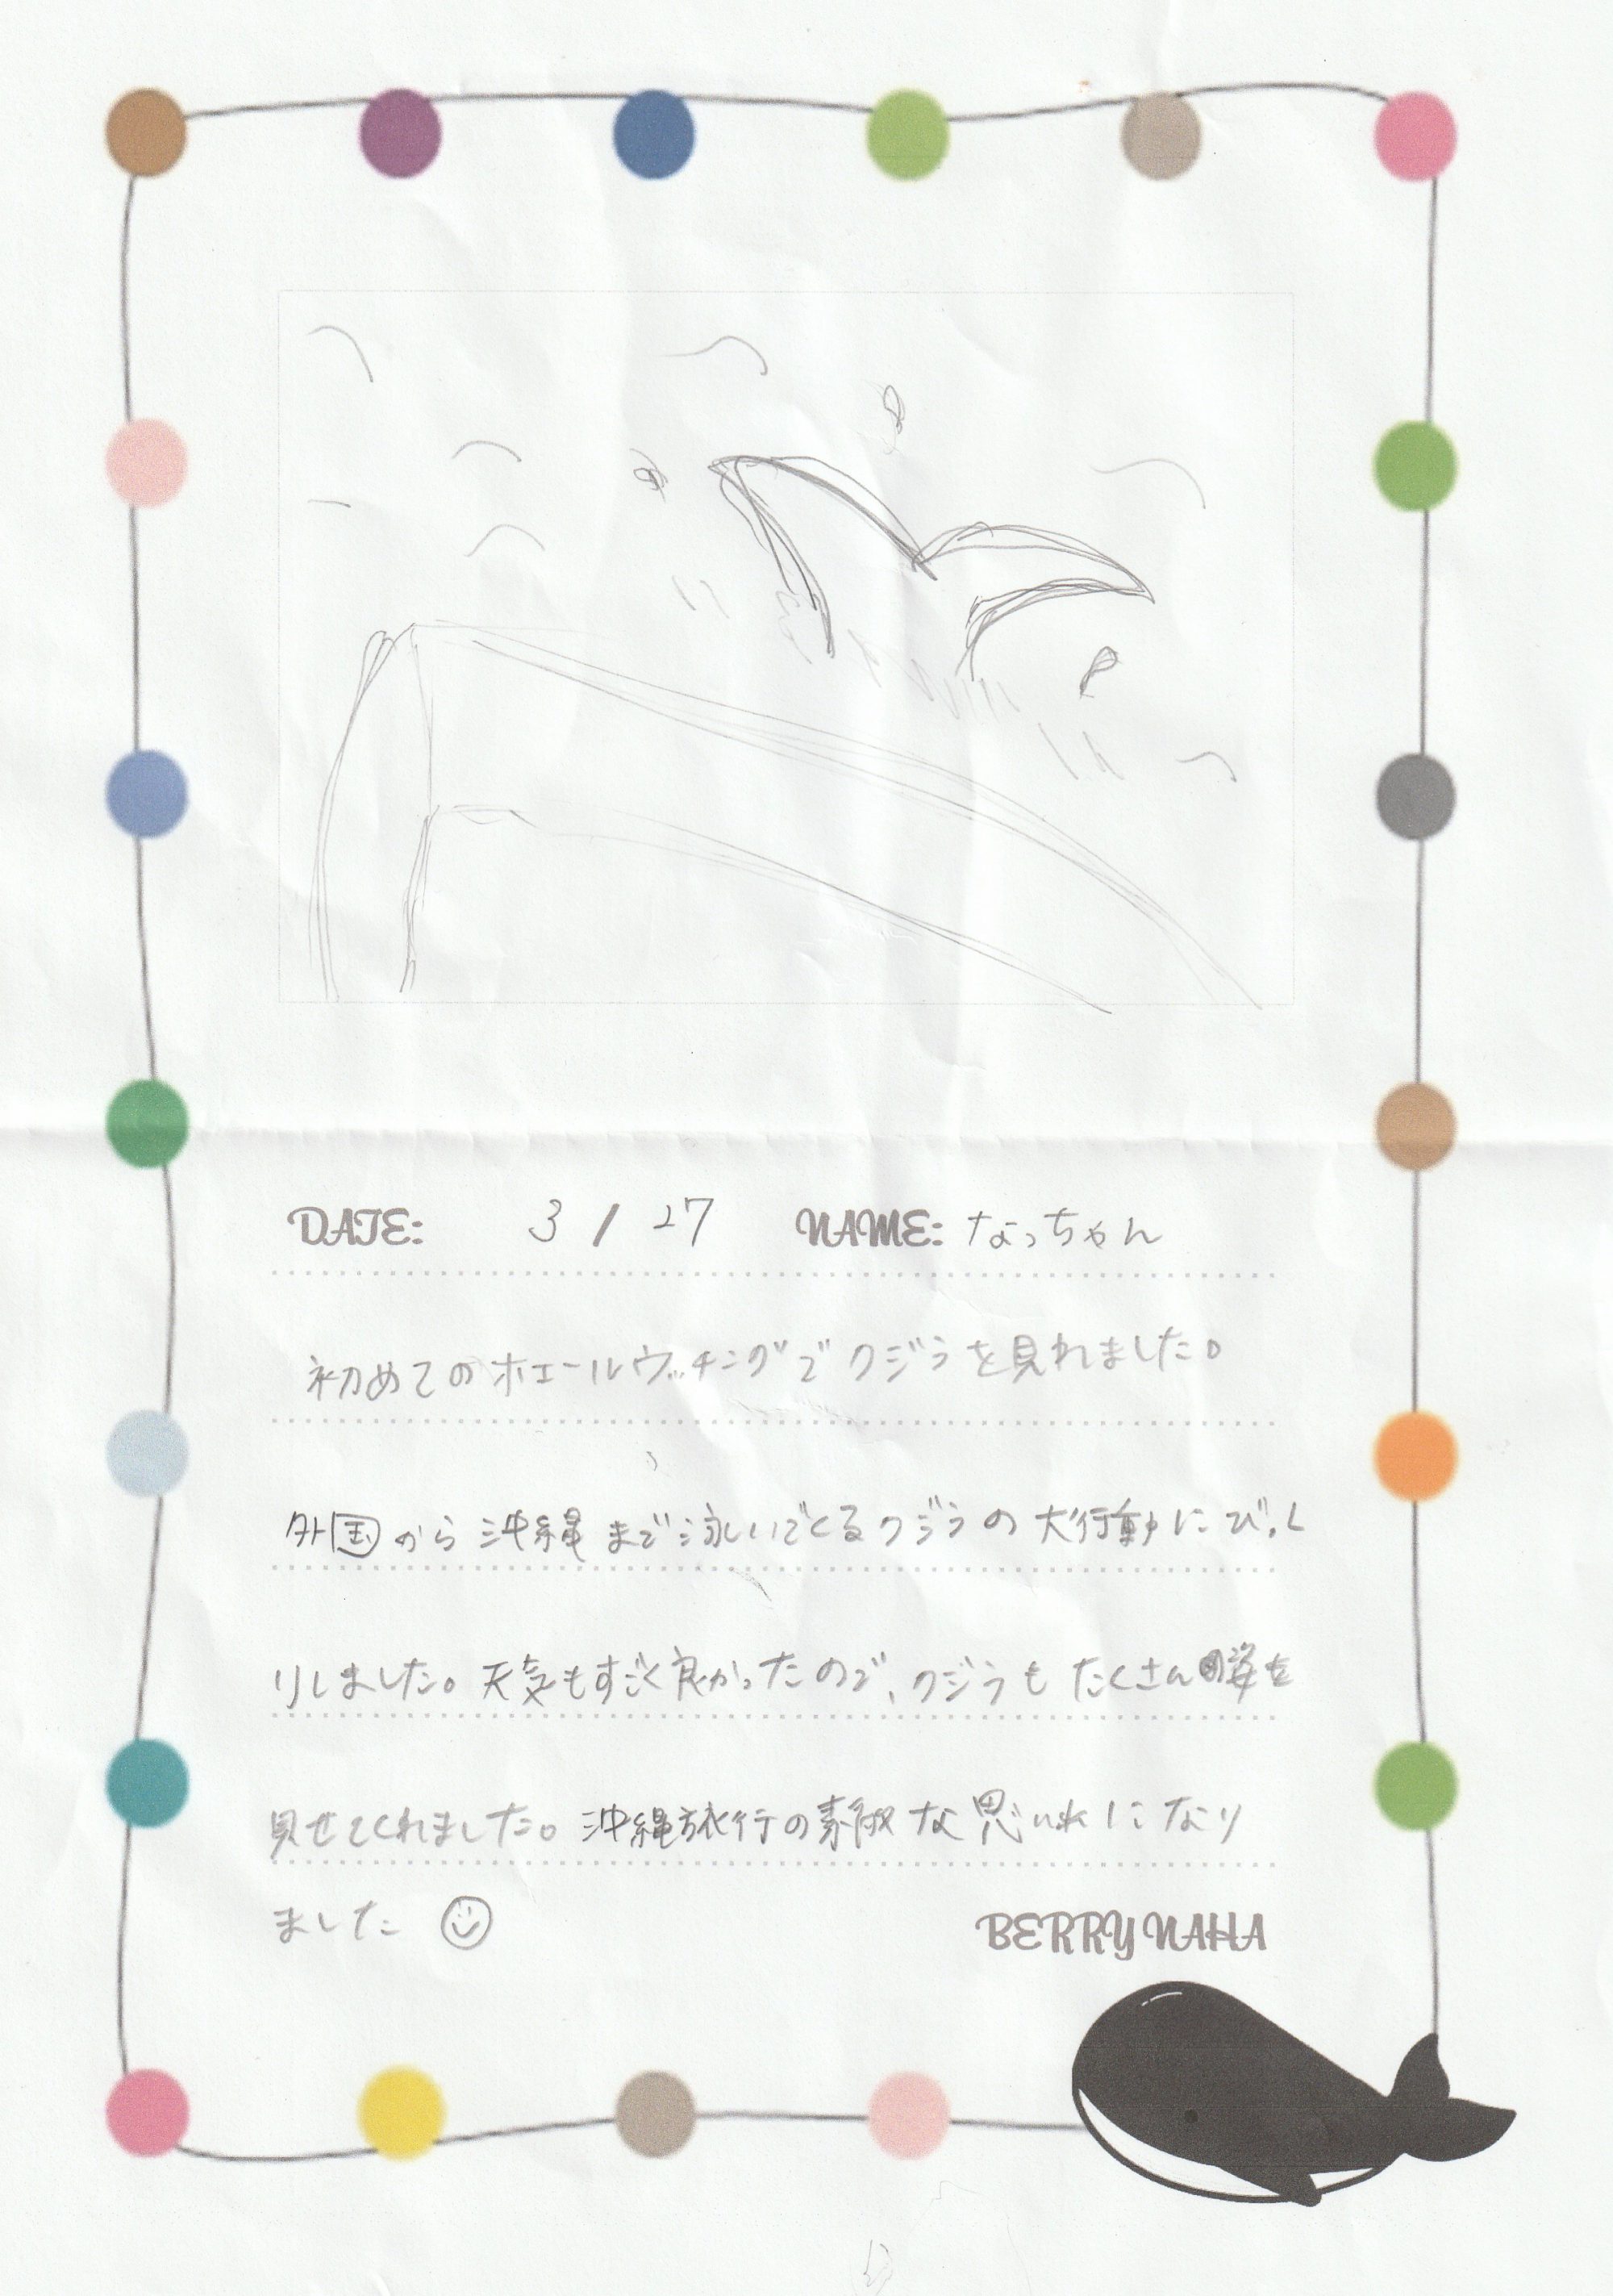 DATE: 3 / 27 NAME: なっちゃん
初めてのホエールウッチングでクジラを見れました。
外国から沖縄まで泳いでくるクジラの大行動にびっく
りしました。天気もすごく良かったので、クジラもたくさん姿を
見せてくれました。沖縄旅行の素敵な思い出になり
ました
BERRY NAHA